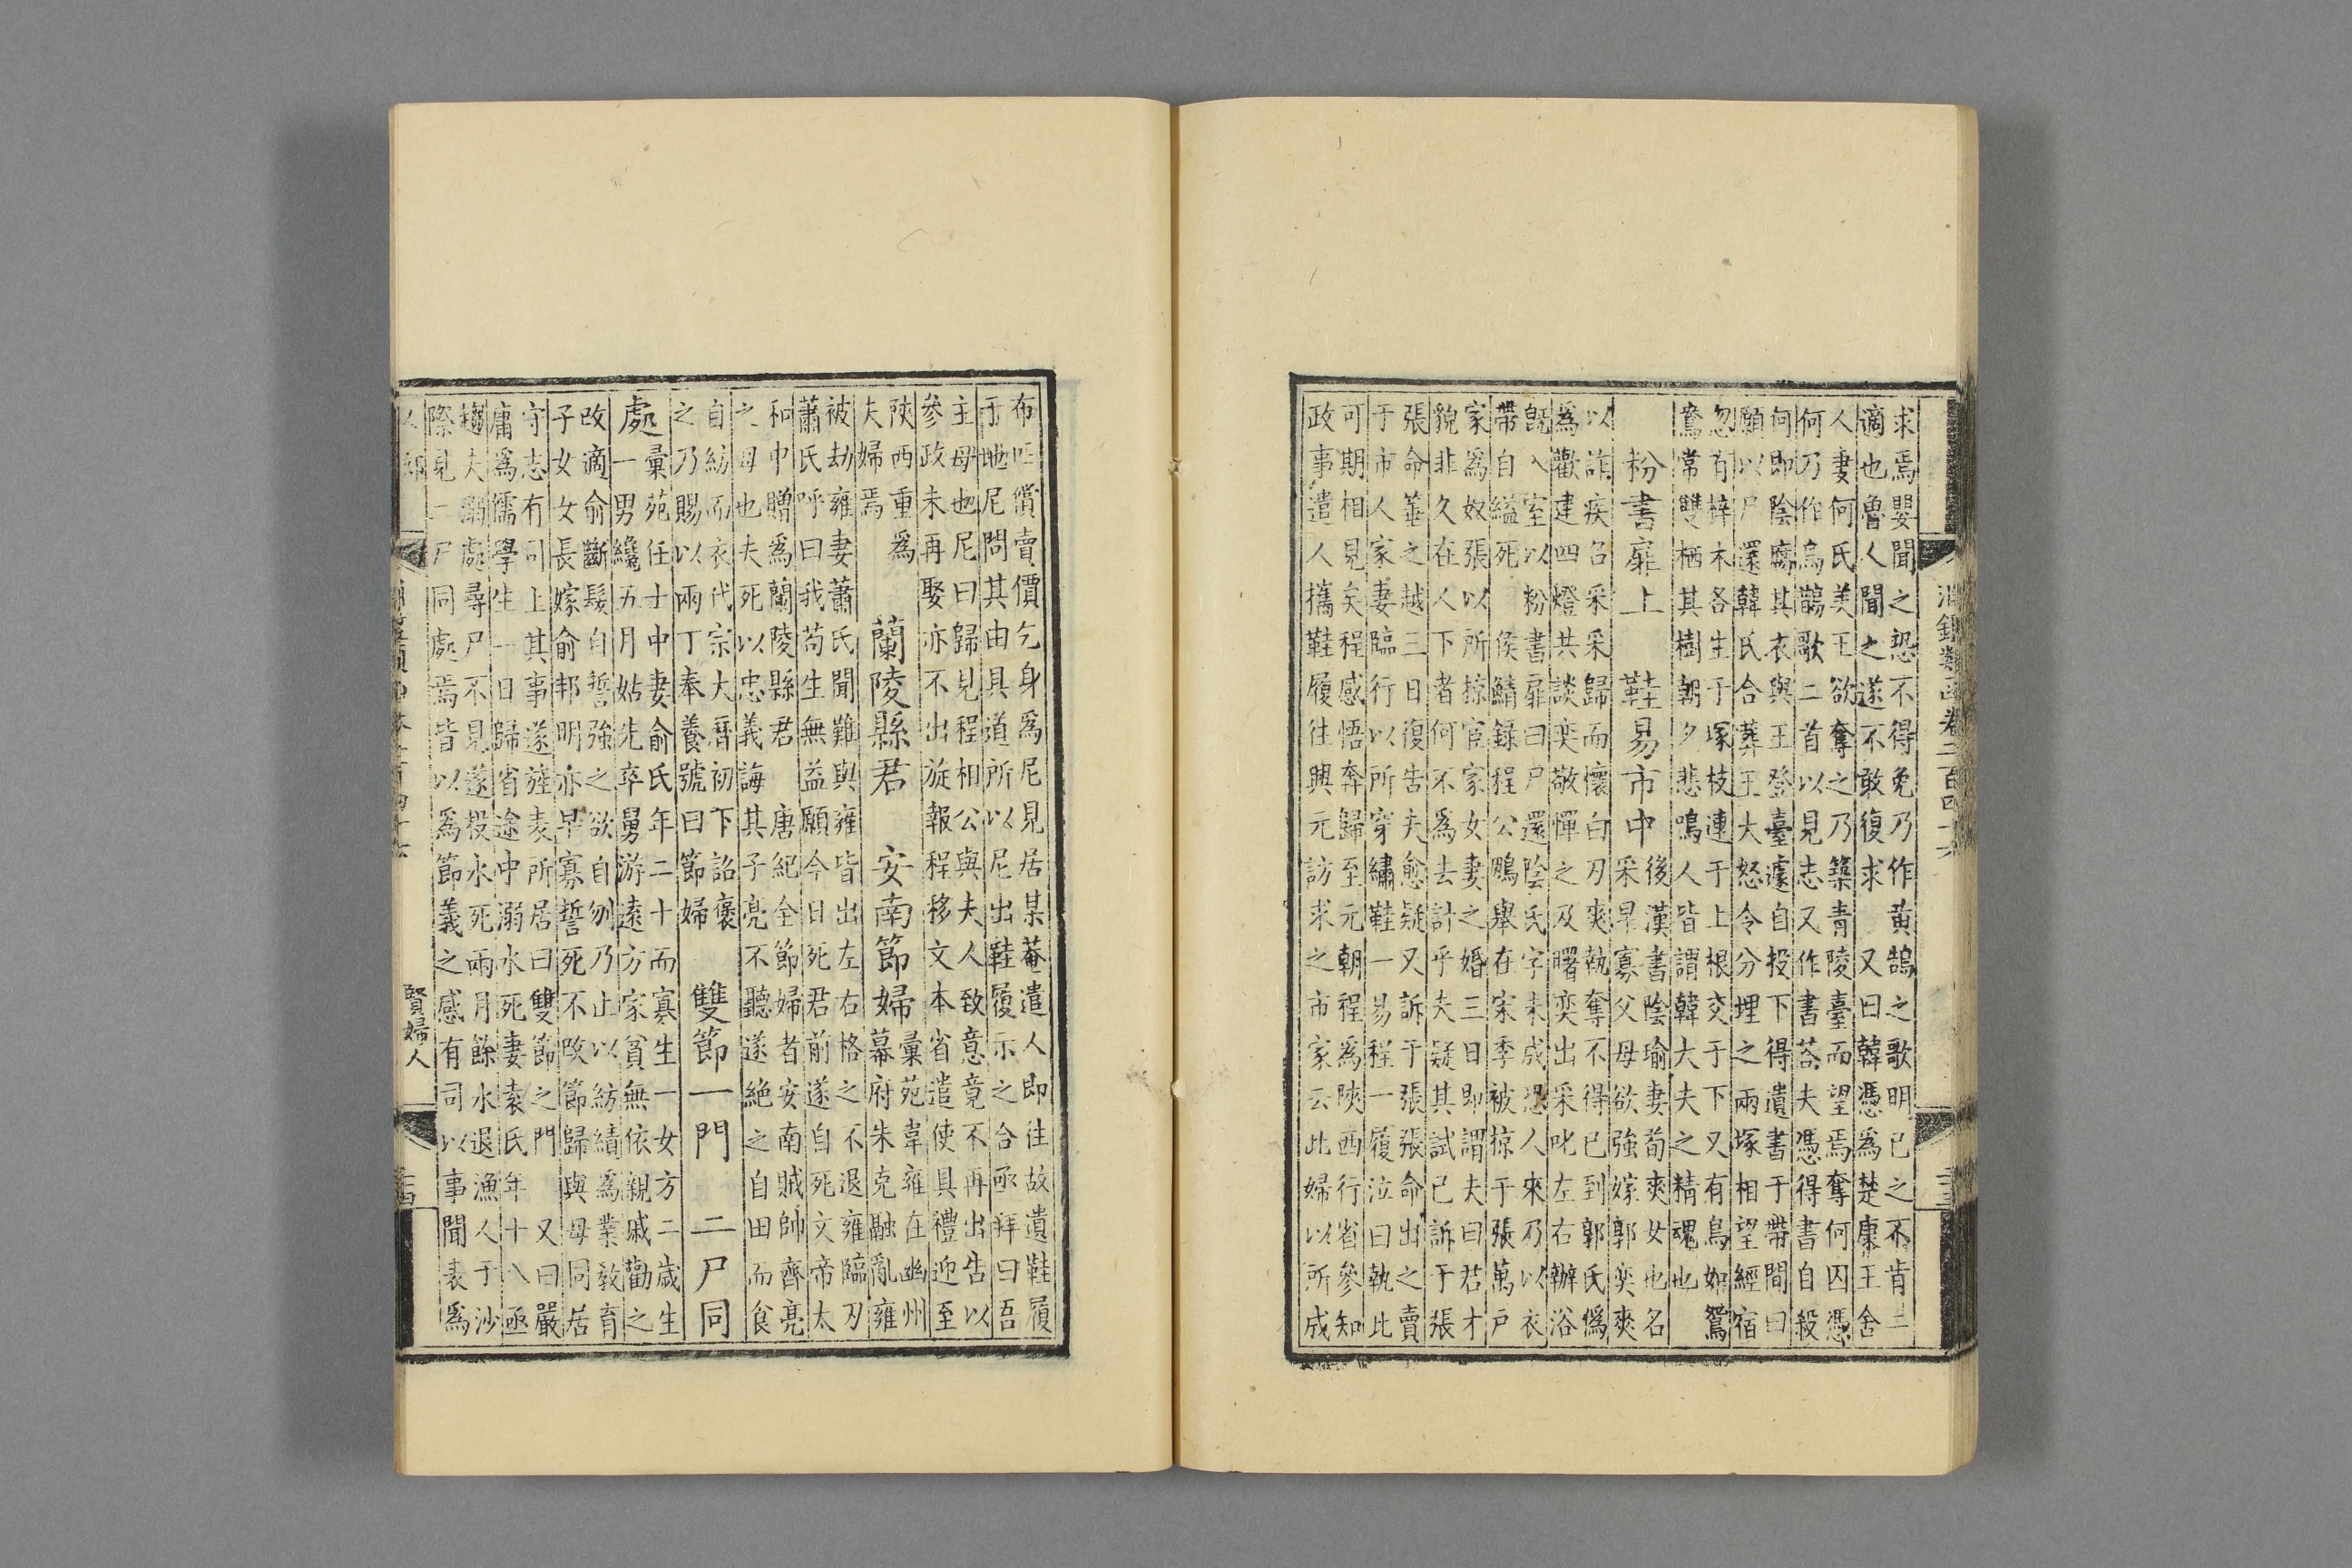 淵鑑類函卷二百四十六
求焉嬰聞之恐不得免乃作黄鵠之歌明已之不肯二
適也魯人聞之遂不敢復求　又曰韓憑爲楚康王舍
人妻何氏美王欲奪之乃築青陵臺而望焉奪何囚憑
何乃作烏鵲歌二首以見志又作書荅夫憑得書自殺
何即陰腐其衣與王登臺遽自投下得遺書于帶間曰
願以尸還韓氏合葬王大怒令分埋之兩塚相望經宿
忽有梓木各生于塚枝連于上根交于下又有鳥如鴛
鴦常雙栖其樹朝夕悲鳴人皆謂韓大夫之精魂也
粉書扉上　鞋易市中
後漢書陰瑜妻荀爽女也名
采早寡父母欲強嫁郭奕爽
以詐疾召采采歸而懷白刃爽執奪不得已到郭氏僞
爲歡建四燈共談奕敬憚之及曙奕出采叱左右辦浴
既入室以粉書扉曰尸還陰陰氏字未成恐人來乃以衣
帶自縊死　侯鯖錄程公鵬舉在宋季被掠于張萬戸
家爲奴張以所掠宦家女妻之婚三日即謂夫曰君才
貌非久在人下者何不爲去計乎夫疑其試已訴于張
張命箠之越三日復告夫愈疑又訴于張張命出之賣
于市人家妻臨行以所穿繡鞋一易程一履泣曰執此
可期相見矣程感悟奔歸至元朝程爲陝西行省參知
政事遣人攜鞋履往興元訪求之市家云此婦以所成
布匹償賣價乞身爲尼見居某菴遣人即往故遺鞋履
于地尼問其由具道所以尼出鞋履示之合亟拜曰吾
主母也尼曰歸見程相公與夫人致意竟不再出告以
參政未再娶亦不出旋報程移文本省遣使具禮迎至
陝西重爲
夫婦焉
蘭陵縣君　安南節婦
彙苑韋雍在幽州
幕府朱克融亂雍
被劫雍妻蕭氏聞難與雍皆出左右格之不退雍臨刃
蕭氏呼曰我苟生無益願今日死君前遂自死文帝太
和中贈爲蘭陵縣君　唐紀全節婦者安南賊帥齊亮
之母也夫死以忠義誨其子亮不聽遂絶之自田而食
自紡而衣代宗大曆初下詔褒
之乃賜以兩丁奉養號曰節婦
雙節一門　二尸同
處
彙苑任士中妻俞氏年二十而寡生一女方二歲生
一男纔五月姑先卒舅游遠方家貧無依親戚勸之
改適俞斷髮自誓強之欲自刎乃止以紡績爲業教育
子女女長嫁俞邦明亦早寡誓死不改節歸與母同居
守志有司上其事遂旌表所居曰雙節之門　又曰嚴
庸爲儒學生一日歸省途中溺水死妻袁氏年十八亟
趨夫溺處尋尸不見遂投水死兩月餘水退漁人于沙
際見二尸同處焉皆以爲節義之感有司以事聞表爲
賢婦人